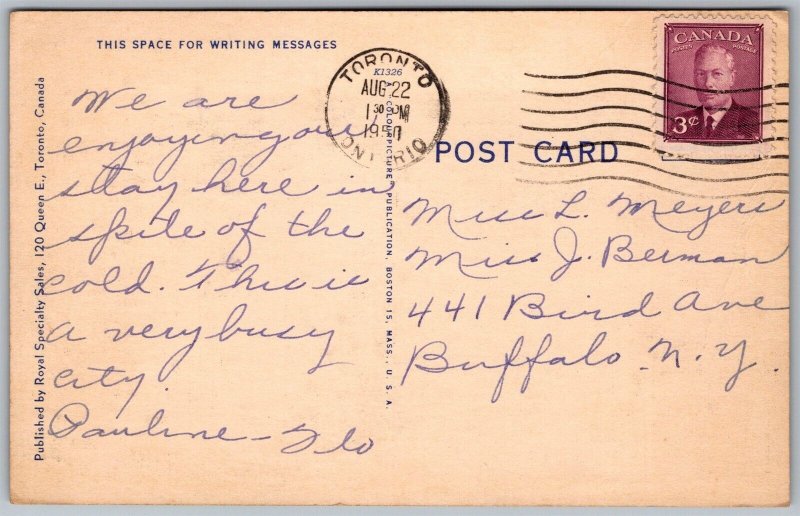 THIS SPACE FOR WRITING MESSAGES
We are
enjoying our
stay here in
spite of the
cold. This is
a very busy
city.
Pauline - Flo
Published by Royal Specialty Sales, 120 Queen E., Toronto, Canada
K1326
"COLOURPICTURE" PUBLICATION, BOSTON 15, MASS., U. S. A.
TORONTO
AUG 22
1 30 PM
1950
ONTARIO
CANADA
POSTES POSTAGE
3¢
POST CARD
Miss L. Meyers
Miss J. Berman
441 Bird Ave
Buffalo N.Y.